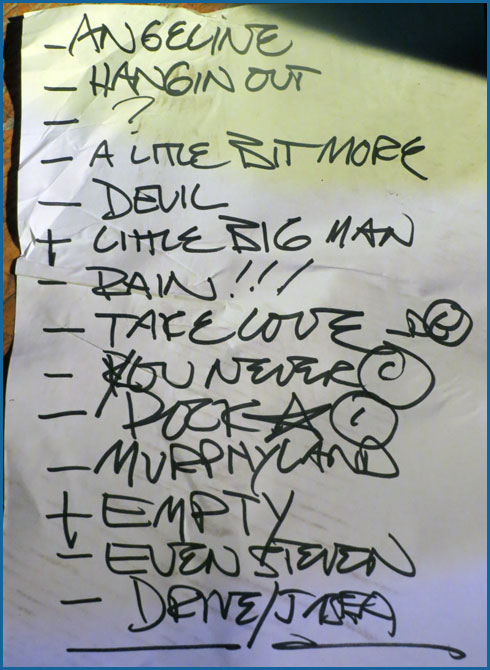 - ANGELINE
- HANGIN OUT
- ?
- A LITTLE BIT MORE
- DEVIL
+ LITTLE BIG MAN
- RAIN!!!
- TAKE LOVE -
- YOU NEVER C
- ROCK ☆
- MURPHYLAND
+ EMPTY
- EVEN STEVEN
- DRIVE/